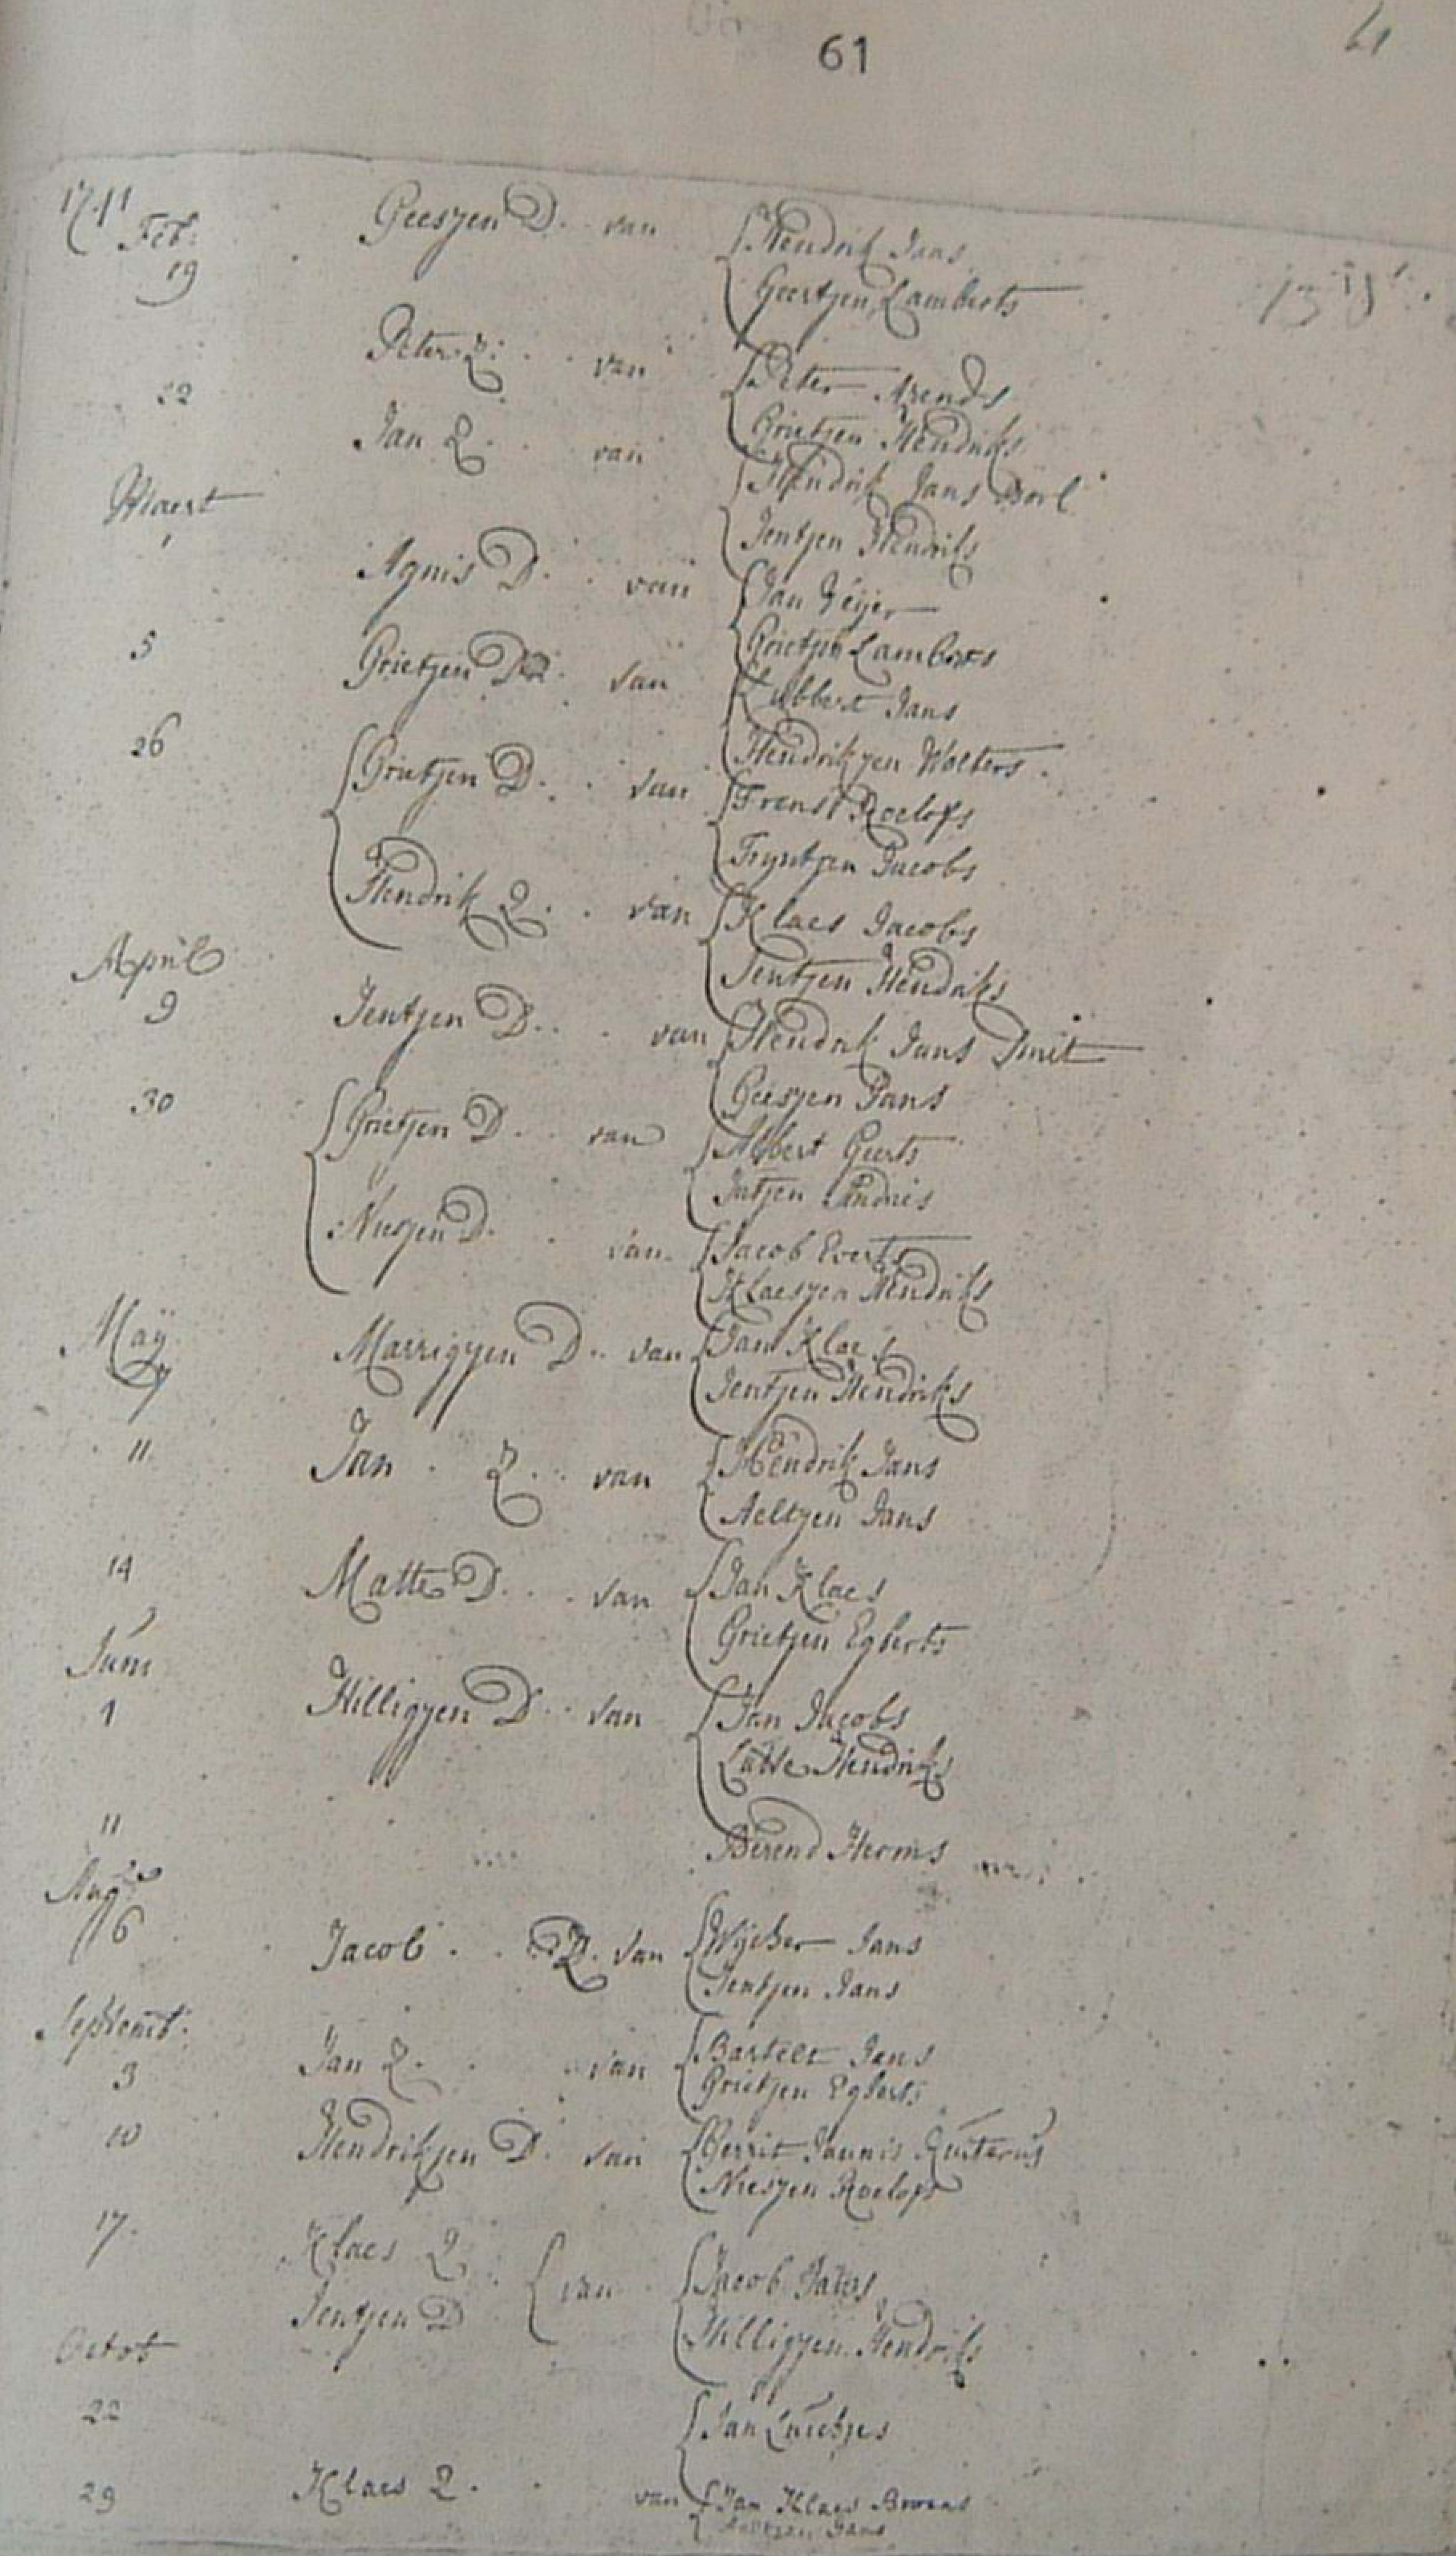 61
61
1711
Feb:
19
Geesjen D. van Hendrik Jans
Geertjen Lamberts
22
Peter Z. van Peter Arends
Grietjen Hendriks
Jan Z. van Hendrik Jans
Jentjen Hendriks
Maert
1
Agnis D. van Jan
Grietjen Lamberts
5
Grietjen D. van Lubbert Jans
Hendrikjen Wolters
26
Grietjen D. van Frens Roelofs
Trijntjen Jacobs
Hendrik Z. van Klaes Jacobs
Jentjen Hendriks
April
9
Jentjen D. van Hendrik Jans Smit
Geesjen Jans
30
Grietjen D. van Albert Geerts
Jntjen
Niesjen D. van Jacob Everts
Klaesjen Hendriks
Maÿ
Marrigjen D. van Jan Klaes
Jentjen Hendriks
11
Jan Z. van Hendrik Jans
Aeltjen Jans
14
Matte D. van Jan Klaes
Grietjen Egberts
Juni
1
Hilligjen D. van Jan Jacobs
Hendriks
11
Berend Herms
Aug
6
Jacob Z. van Wijcher Jans
Jentjen Jans
Septemb:
3
Jan Z. van Bartelt Jans
Grietjen Egberts
10
Hendrikjen D. van Gerrit Jannis
Niesjen Roelofs
17.
Klaes Z.
Jentjen D. van Jacob
Hilligjen Hendriks
Octob
22
Jan
29
Klaes Z. van Jan Klaes
Jans